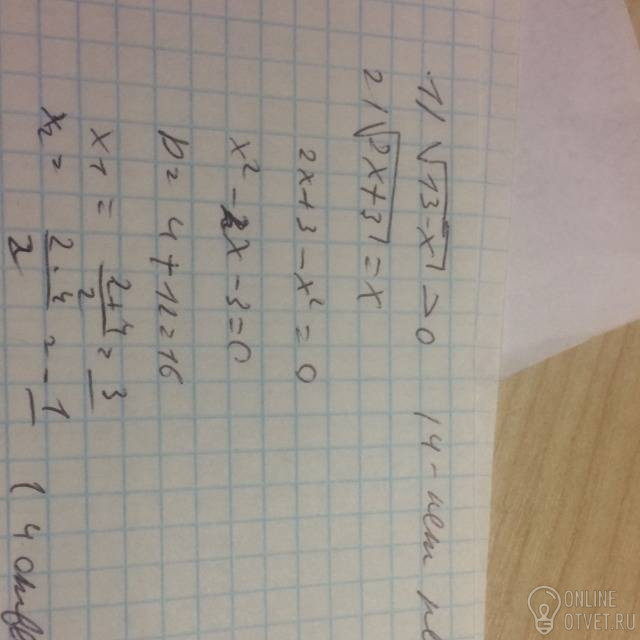 1) √13-x > 0 14 - нет
2) √2x+3 = x
2x+3-x² = 0
x² - 2x - 3 = 0
D = 4 + 12 = 16
x1 = 2+4/2 = 3
x2 = 2-4/2 = -1 (
ONLINE
OTVET.RU